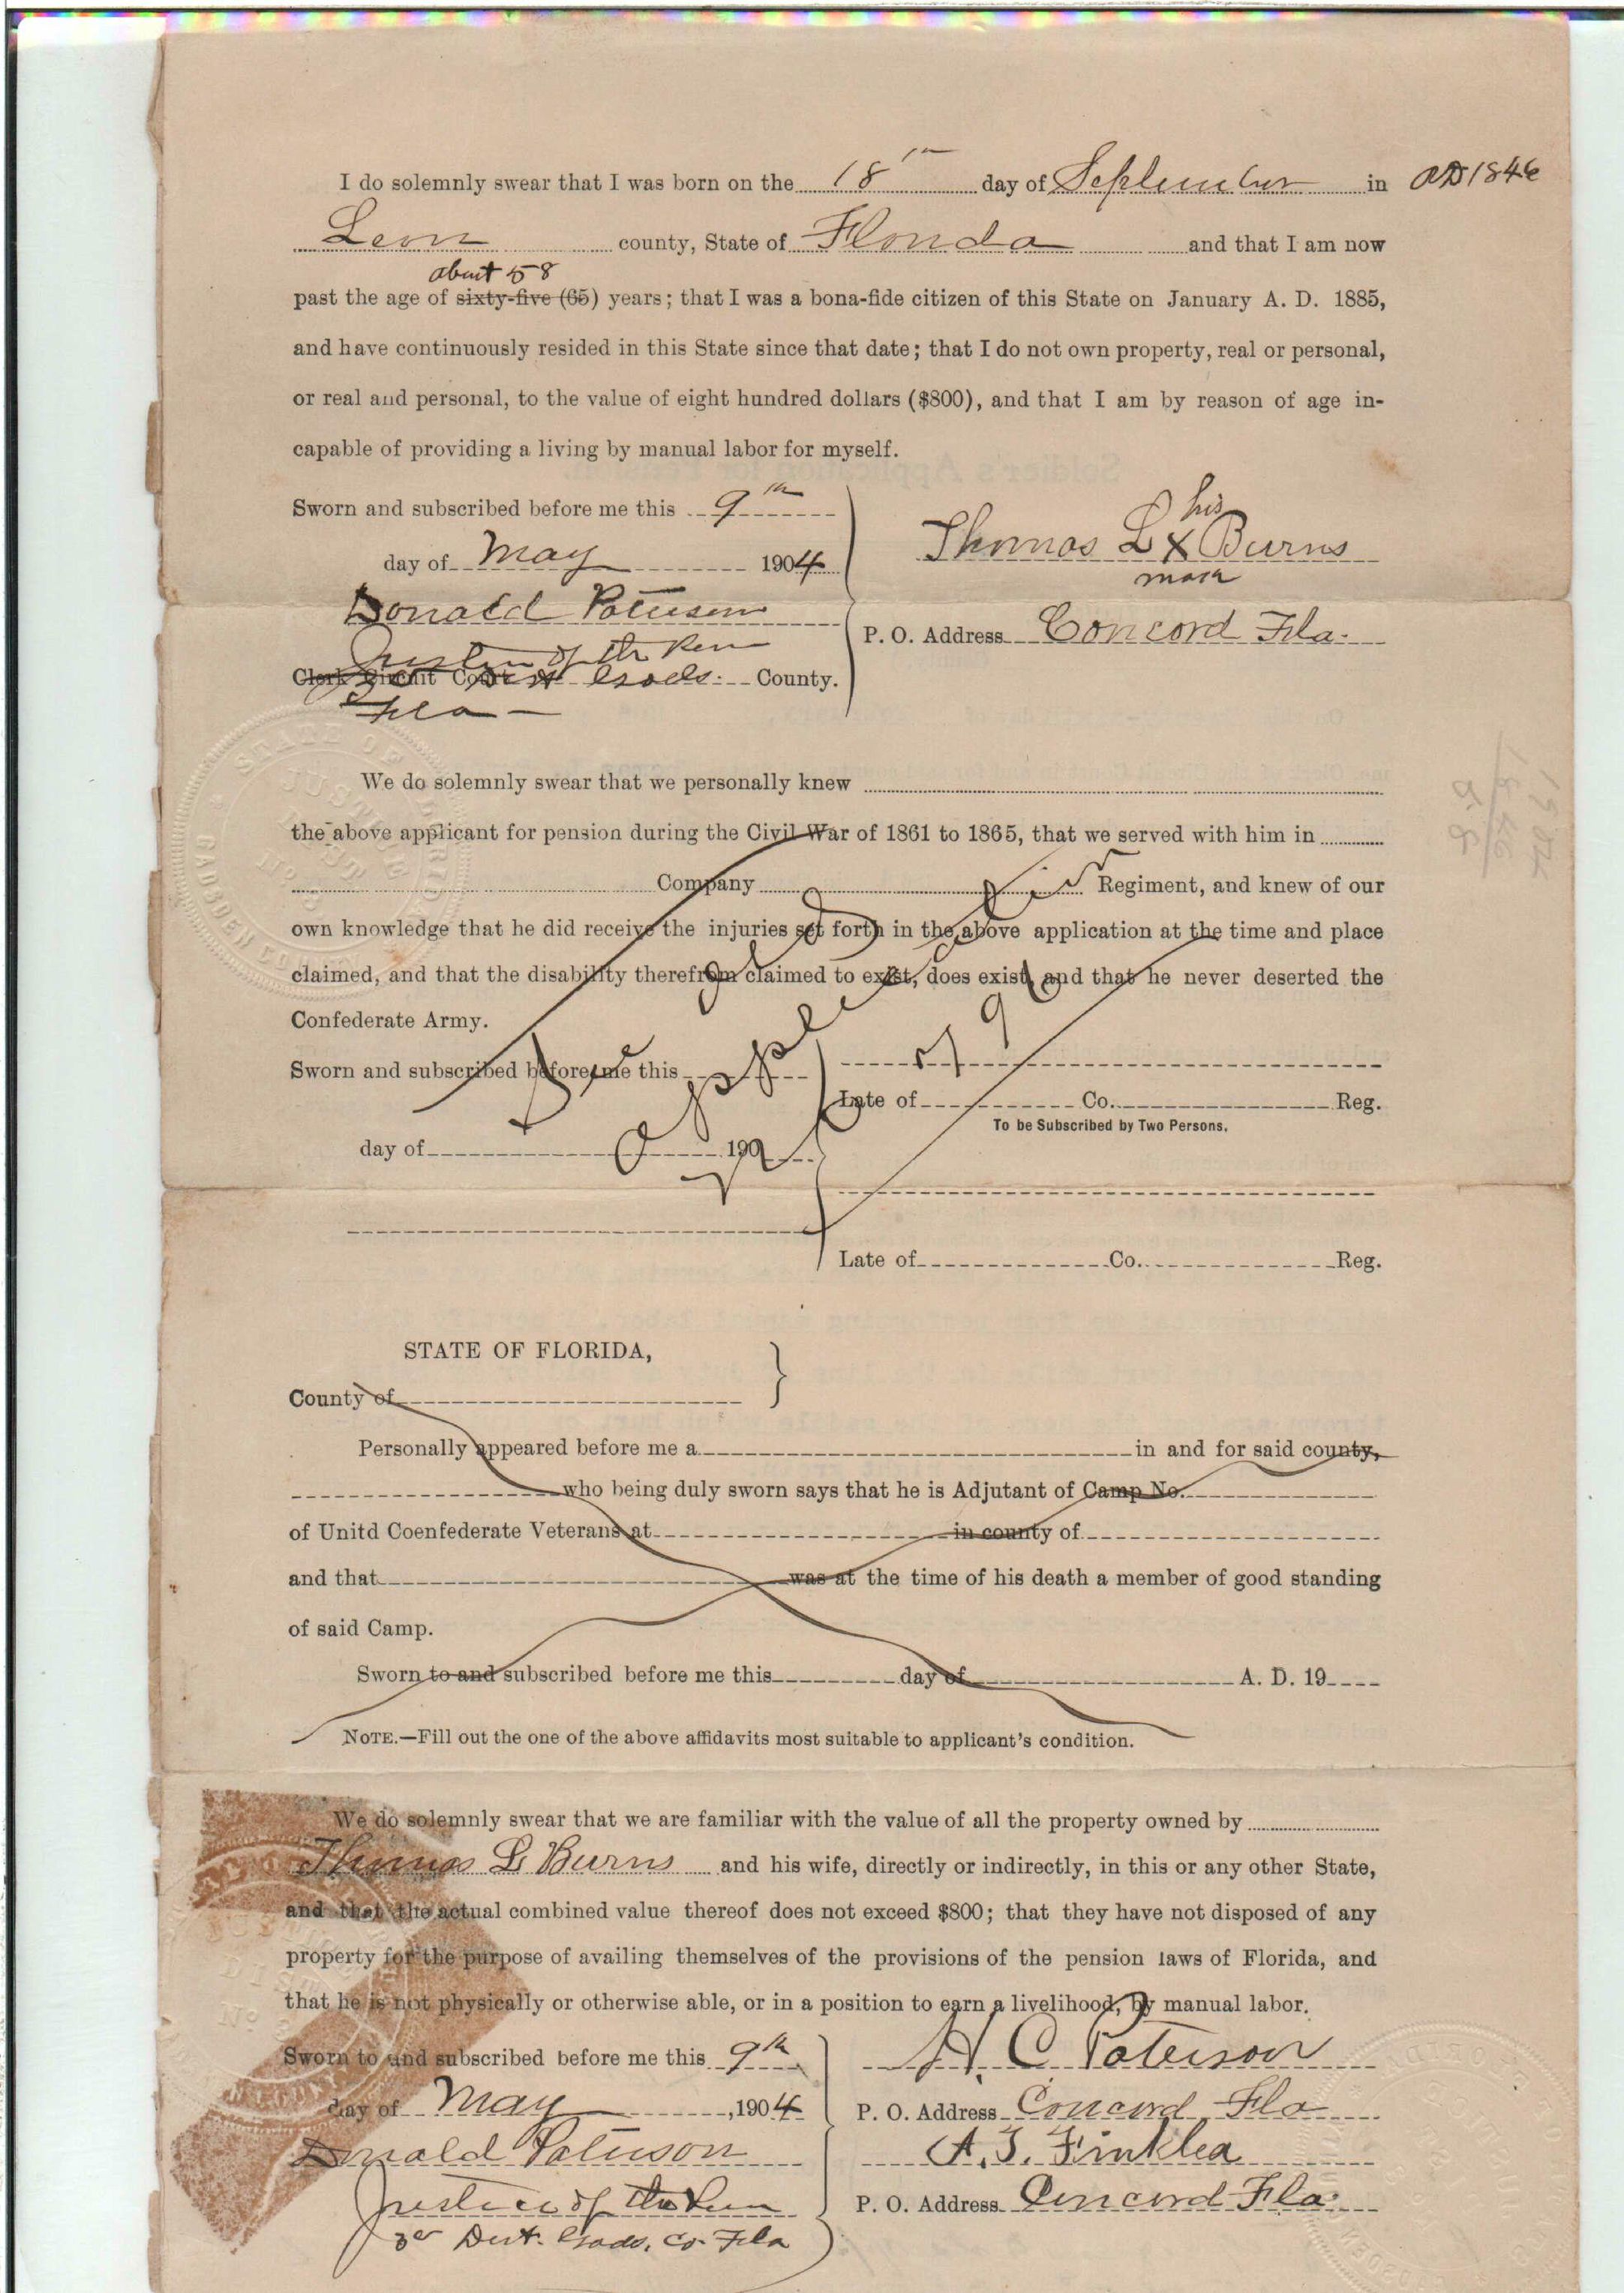 I do solemnly swear that I was born on the 18th day of September in AD 1846
Leon county, State of Florida and that I am now
about 58
past the age of sixty-five (65) years; that I was a bona-fide citizen of this State on January A. D. 1885,
and have continuously resided in this State since that date; that I do not own property, real or personal,
or real and personal, to the value of eight hundred dollars ($800), and that I am by reason of age in-
capable of providing a living by manual labor for myself.
Sworn and subscribed before me this 9th
day of May 1904
Donald Paterson
Justice of the Peace
Clerk Circuit Court Dist Gads. County.
Fla
his
Thomas L X Burns
mark
P. O. Address Concord Fla.
STATE OF FLORIDA
JUSTICE
GADSDEN CO
We do solemnly swear that we personally knew
the above applicant for pension during the Civil War of 1861 to 1865, that we served with him in
Company Regiment, and knew of our
own knowledge that he did receive the injuries set forth in the above application at the time and place
claimed, and that the disability therefrom claimed to exist, does exist, and that he never deserted the
Confederate Army.
Sworn and subscribed before me this
day of 190
See old applica
of 9
Late of Co. Reg.
To be Subscribed by Two Persons.
Late of Co. Reg.
STATE OF FLORIDA,
County of
Personally appeared before me a in and for said county,
who being duly sworn says that he is Adjutant of Camp No.
of Unitd Coenfederate Veterans at in county of
and that was at the time of his death a member of good standing
of said Camp.
Sworn to and subscribed before me this day of A. D. 19
NOTE.—Fill out the one of the above affidavits most suitable to applicant's condition.
We do solemnly swear that we are familiar with the value of all the property owned by
Thomas L Burns and his wife, directly or indirectly, in this or any other State,
and that the actual combined value thereof does not exceed $800; that they have not disposed of any
property for the purpose of availing themselves of the provisions of the pension laws of Florida, and
that he is not physically or otherwise able, or in a position to earn a livelihood, by manual labor.
Sworn to and subscribed before me this 9th
day of May ,1904
Donald Paterson
Justice of the Peace
3er Dist. Gads. Co. Fla
H. C. Paterson
P. O. Address Concord Fla
A. J. Finklea
P. O. Address Concord Fla.